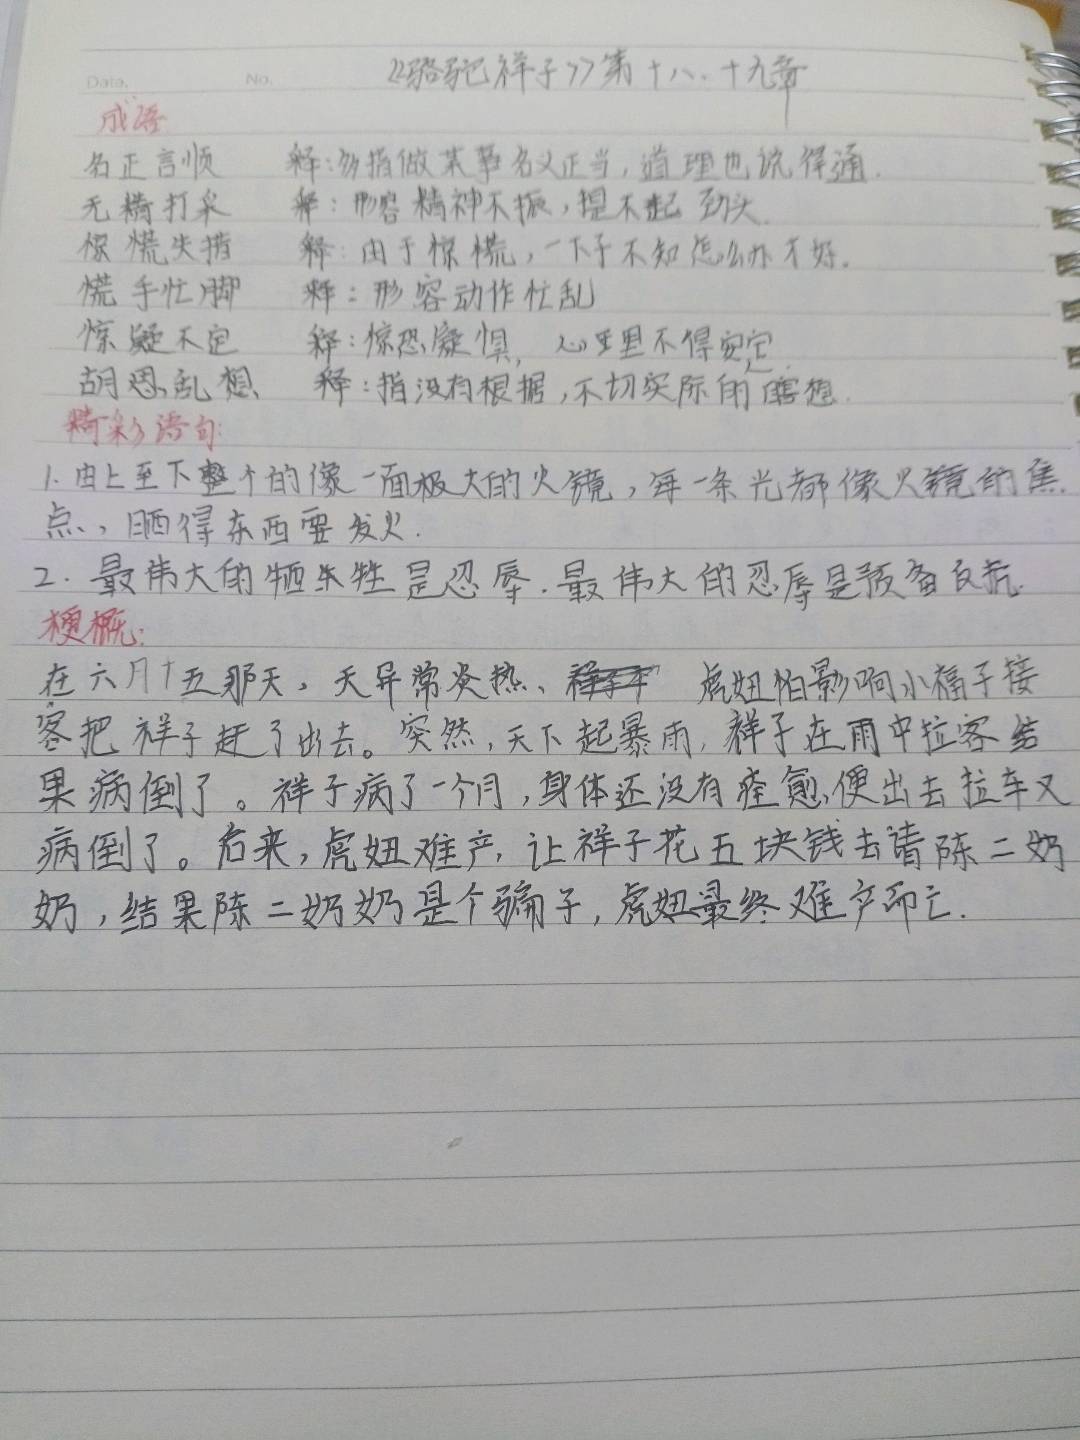 Date. No. 《骆驼祥子》第十八、十九章
成语
名正言顺 释:多指做某事名义正当，道理也说得通.
无精打采 释：形容精神不振，提不起劲头.
惊慌失措 释：由于惊慌，一下子不知怎么办才好.
慌手忙脚 释：形容动作忙乱
惊疑不定 释:惊恐疑惧，心里不得安定.
胡思乱想 释：指没有根据，不切实际的瞎想.
精彩语句:
1.由上至下整个的像一面极大的火镜，每一条光都像火镜的焦
点，晒得东西要发火.
2.最伟大的牺牲是忍辱.最伟大的忍辱是预备反抗.
梗概:
在六月十五那天，天异常炎热、虎妞怕影响小福子接
客把祥子赶了出去。突然，天下起暴雨，祥子在雨中拉客结
果病倒了。祥子病了一个月，身体还没有痊愈，便出去拉车又
病倒了。后来，虎妞难产，让祥子花五块钱去请陈二奶
奶，结果陈二奶奶是个骗子，虎妞最终难产而亡.